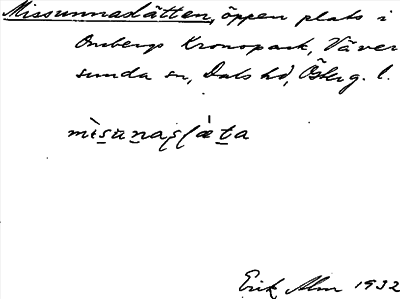 Missunnaslätten, öppen plats i
Ombergs Kronopark, Väver
sunda sn, Dals hd, Österg. l.
mìsunaslǽta
Erik Alm 1932